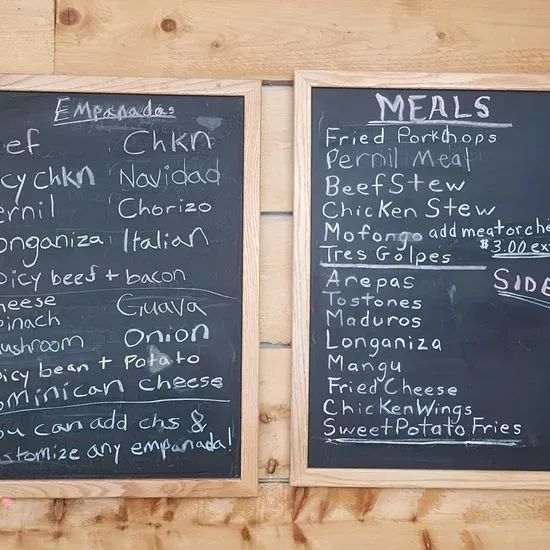 Empanadas
eef Chkn
cy chkn Navidad
ernil Chorizo
onganiza Italian
picy beef + bacon
cheese Guava
pinach
ushroom Onion
icy bean + Potato
ominican cheese
ou can add chs &
stomize any empanada!
MEALS
Fried Porkchops
Pernil Meat
Beef Stew
Chicken Stew
Mofongo add meat or che
$3.00 ex
Tres Golpes
SIDE
Arepas
Tostones
Maduros
Longaniza
Mangu
Fried Cheese
Chicken Wings
Sweet Potato Fries